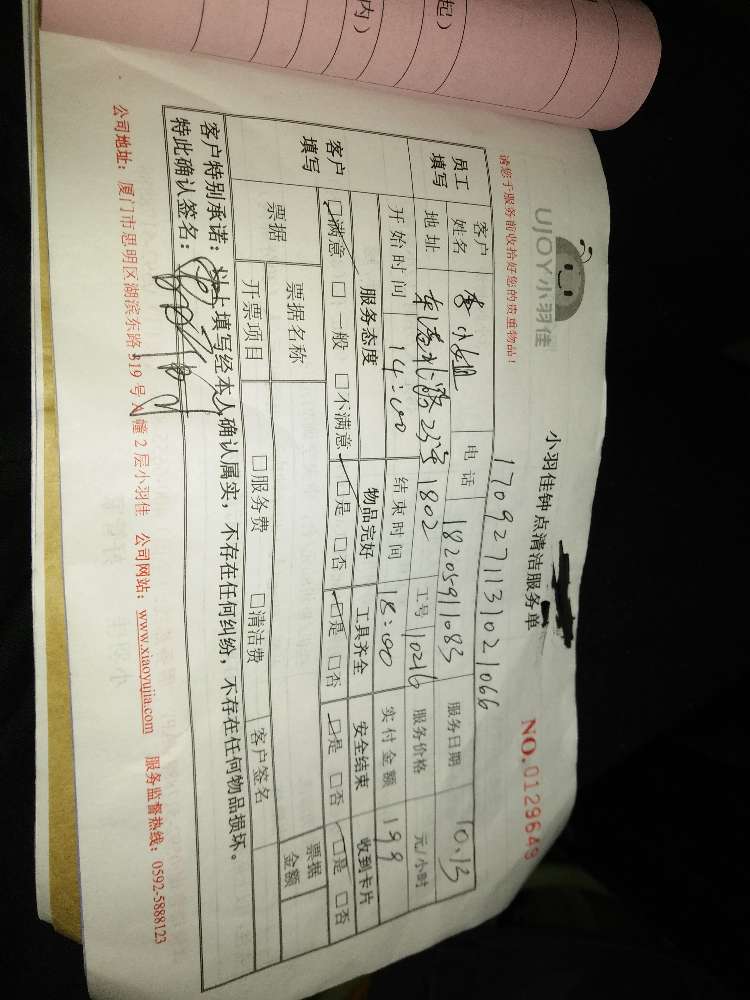 起）
内）
UJOY小羽佳
小羽佳钟点清洁服务单
NO.0129649
请您于服务前收拾好您的贵重物品！
1709271131021066
员工填写
客户姓名 李小姐 电话 18205911083 服务日期 10.13
地址 1802 工号 10216 服务价格 元/小时
开始时间 14:00 结束时间 18:00 实付金额 199
客户填写
服务态度 物品完好 工具齐全 安全结束 收到卡片
□满意 □一般 □不满意 □是 □否 □是 □否 □是 □否 □是 □否
票据 票据名称 票据金额
开票项目 □服务费 □清洁费 客户签名
客户特别承诺：以上填写经本人确认属实，不存在任何纠纷，不存在任何物品损坏。
特此确认签名：
公司地址：厦门市思明区湖滨东路319号A幢2层小羽佳 公司网站：www.xiaoyujia.com 服务监督热线：0592-5888123